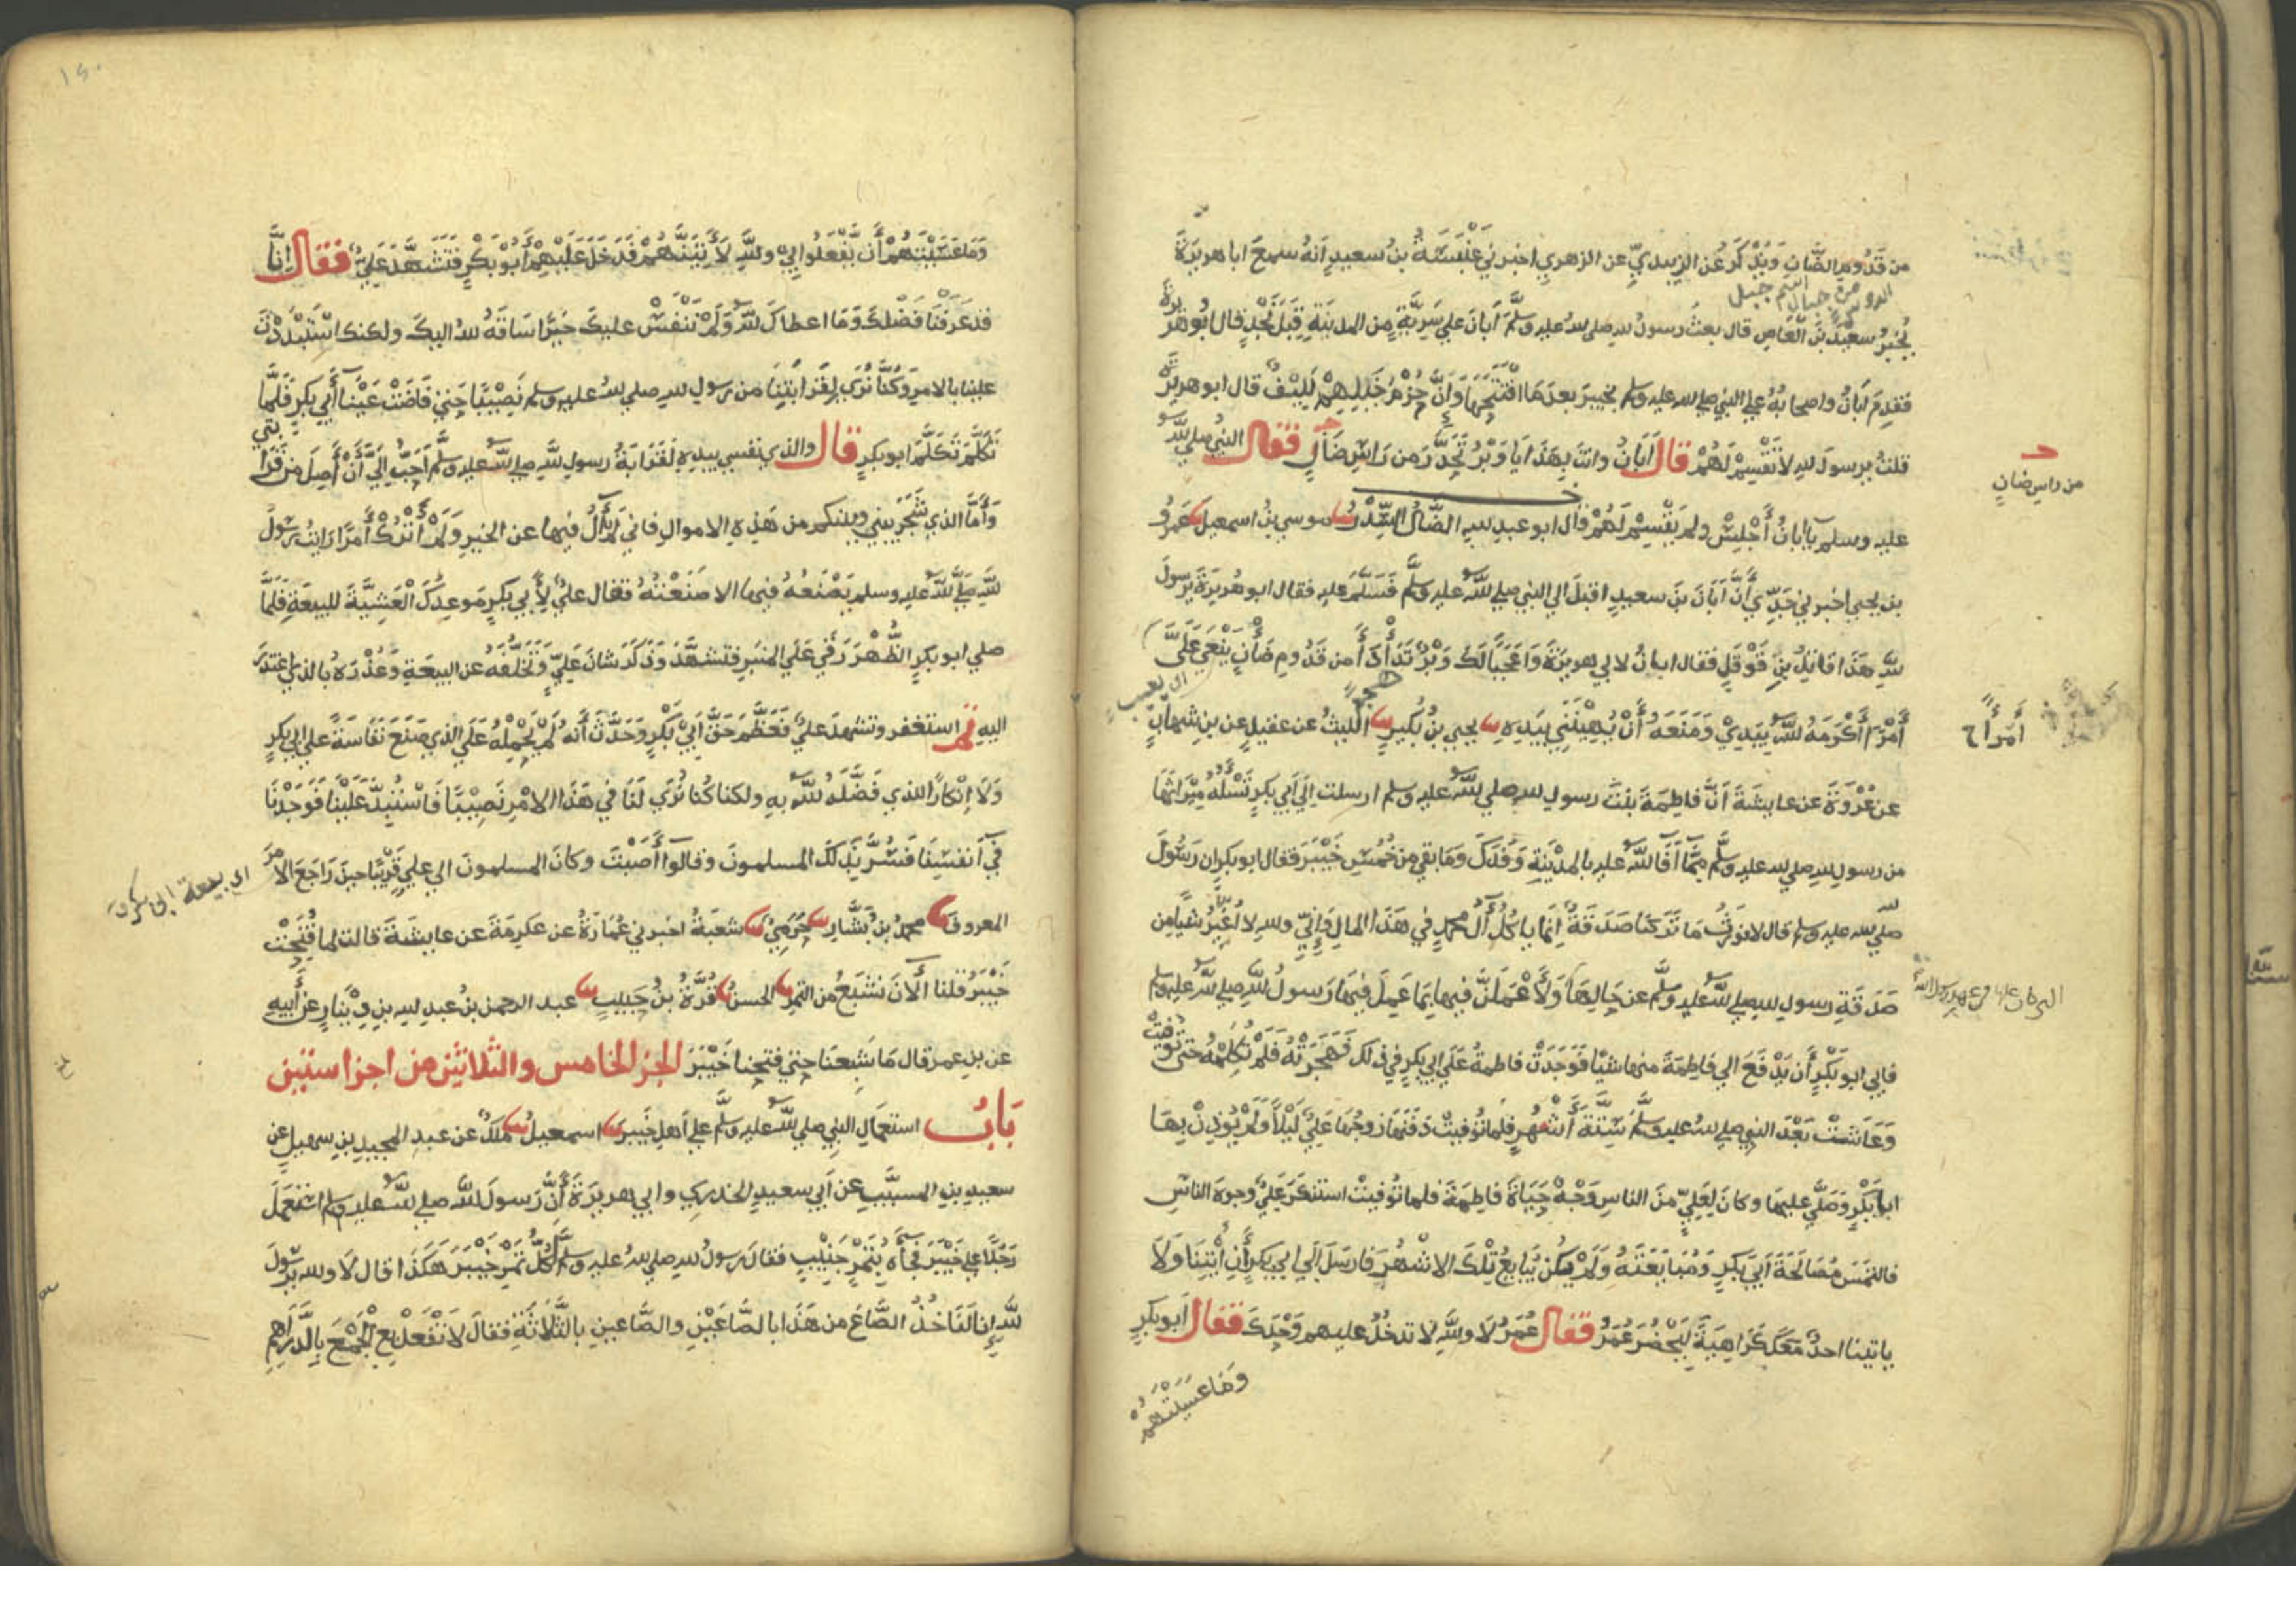 من قدوم الضان ويذكر عن الزبيدي عن الزهري اخبرني عنبسة بن سعيد انه سمع ابا هريرة
اسم جبل
يخبر سعيد بن العاص قال بعث رسول لله صلي لله عليه وسلم أبان علي سرية من المدينة قبل نجد قال ابوهريرة
فقدم أبان واصحابه علي النبي صلي لله عليه وسلم بخيبر بعد ما افتتحها وان حزم خيلهم لليف قال ابو هريرة
قلت يرسول لله لا تقسم لهم قال أبان وانت بهذا يا وبر تحدر من راس ضال فقال النبي صلي لله
من راس ضان
عليه وسلم يا أبان أجلس ولم يقسم لهم قال ابو عبد لله الضال السدر موسي بن اسمعيل عمرو
بن يحيي اخبرني جدي أن أبان بن سعيد اقبل الي النبي صلي لله عليه وسلم فسلم عليه فقال ابو هريرة يرسول
لله هذا قاتل بن قوقل فقال ابان لابي هريرة واعجبا لك وبر تدأدأ من قدوم ضأن ينعي علي
اى يعيب
أمرأ أكرمه لله بيدي ومنعه أن يهينني بيده يحيي بن بكير الليث عن عقيل عن بن شهاب
عن عروة عن عايشة أن فاطمة بنت رسول لله صلي لله عليه وسلم ارسلت الي أبي بكر تسله ميراثها
من رسول لله صلي لله عليه وسلم مما أفا لله عليه بالمدينة وفدك وما بقي من خمس خيبر فقال ابو بكر ان رسول
لله صلي لله عليه وسلم قال لا نورث ما تركنا صدقة إنما ياكل آل محمد في هذا المال وإني ولله لا أغير شيأ من
صدقة رسول لله صلي لله عليه وسلم عن حالها ولأعملن فيها بما عمل فيها رسول لله صلي لله عليه وسلم
فابي ابو بكر أن يدفع الي فاطمة منها شيأ فوجدت فاطمة علي ابي بكر في ذلك فهجرته فلم تكلمه حتي توفيت
وعاشت بعد النبي صلي لله عليه وسلم ستة أشهر فلما توفيت دفنها زوجها علي ليلا ولم يوذن بها
ابا بكر وصلي عليها وكان لعلي من الناس وجه حياة فاطمة فلما توفيت استنكر علي وجوه الناس
فالتمس مصالحة أبي بكر ومبايعته ولم يكن يبايع تلك الاشهر فارسل الي ابي بكر أن أتنا ولا
ياتينا احد معك كراهية ليحضر عمر فقال عمر لا ولله لا تدخل عليهم وحدك فقال أبو بكر
وما عسيتهم
١٢٠
وما عسيتهم أن يفعلوا بي ولله لأتينهم فدخل عليهم أبو بكر فتشهد علي فقال إنا
قد عرفنا فضلك وما اعطاك لله ولم ننفس عليك خيرا ساقه لله اليك ولكنك استبددت
علينا بالامر وكنا نري لقرابتنا من رسول لله صلي لله عليه وسلم نصيبا حتي فاضت عينا أبي بكر فلما
تكلم ابو بكر قال والذي نفسي بيده لقرابة رسول لله صلي لله عليه وسلم أحب الي أن أصل من قرابتي
وأما الذي شجر بيني وبينكم من هذه الاموال فاني لم أل فيها عن الخير ولم أترك أمرا رايت رسول
لله صلي لله عليه وسلم يصنعه فيها الا صنعته فقال علي لأبي بكر موعدك العشية للبيعة فلما
صلي ابو بكر الظهر رقي علي المنبر فتشهد وذكر شان علي وتخلفه عن البيعة وعذره بالذي اعتذر
اليه ثم استغفر وتشهد علي فعظم حق أبي بكر وحدث أنه لم يحمله علي الذي صنع نفاسة علي ابي بكر
ولا إنكارا للذي فضله لله به ولكنا كنا نري لنا في هذا الامر نصيبا فاستبد علينا فوجدنا
في أنفسنا فسر بذلك المسلمون وقالوا أصبت وكان المسلمون الي علي قريبا حين راجع الامر
اى بيعة ابى بكر
المعروف محمد بن بشار حرمي شعبة اخبرني عمارة عن عكرمة عن عايشة قالت لما فتحت
خيبر قلنا ألان نشبع من التمر الحسن قرة بن حبيب عبد الرحمن بن عبد لله بن دينار عن أبيه
عن بن عمر قال ما شبعنا حتي فتحنا خيبر الجز الخامس والثلاثين من اجزا ستين
باب استعمال النبي صلي لله عليه وسلم علي أهل خيبر اسمعيل ملك عن عبد المجيد بن سهيل عن
سعيد بن المسيب عن أبي سعيد الخدري وابي هريرة أن رسول لله صلي لله عليه وسلم استعمل
رجلا علي خيبر فجأه بتمر جنيب فقال رسول لله صلي لله عليه وسلم أكل تمر خيبر هكذا قال لا ولله يرسول
لله إنا لناخذ الصاع من هذا بالصاعين والصاعين بالثلاثة فقال لا تفعل بع الجمع بالدراهم